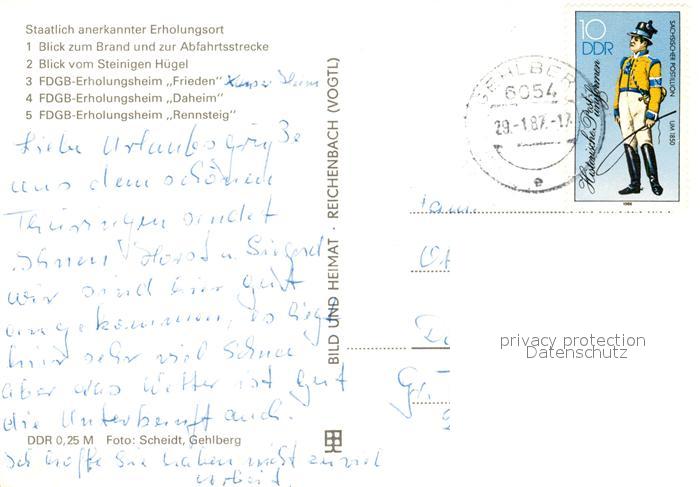 Staatlich anerkannter Erholungsort
1 Blick zum Brand und zur Abfahrtsstrecke
2 Blick vom Steinigen Hügel
3 FDGB-Erholungsheim „Frieden" unser Heim
4 FDGB-Erholungsheim „Daheim"
5 FDGB-Erholungsheim „Rennsteig"
Liebe Urlaubsgrüße
aus dem schönen
Thüringen sendet
Ihnen Horst u. Siegrid
wir sind hier gut
angekommen, es liegt
hier sehr viel Schnee
aber das Wetter ist gut
die Unterkunft auch.
DDR 0,25 M Foto: Scheidt, Gehlberg
Ich hoffe Sie haben nicht zu viel
Arbeit.
BILD UND HEIMAT · REICHENBACH (VOGTL)
GEHLBERG
6054
29.-1.87.-17
e
10
DDR
Historische Postuniformen
SÄCHSISCHER POSTILLION UM 1850
1986
Fam.
privacy protection
Datenschutz